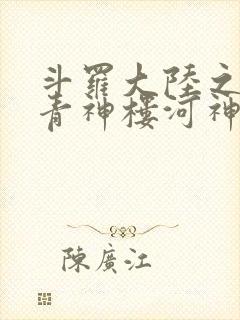 斗羅大陸之
青神樓河神
陳廣江